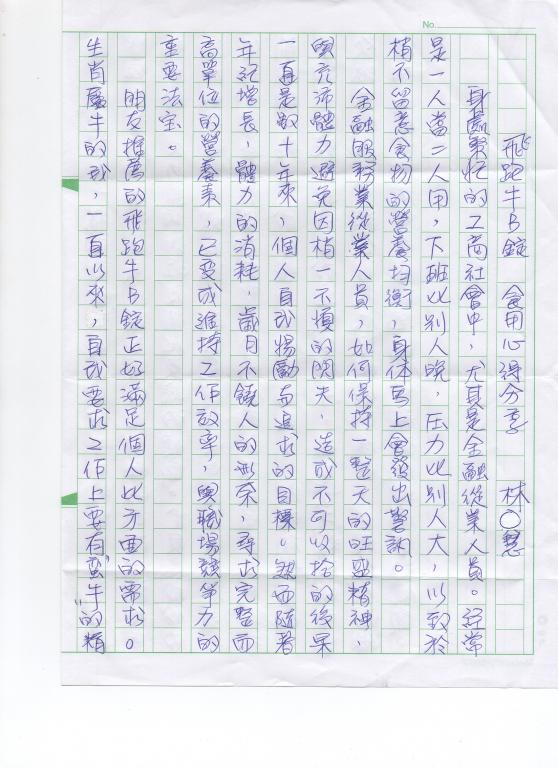 No.
飛跑牛B錠 食用心得分享 林○慧
身處繁忙的工商社會中，尤其是金融從業人員。經常
是一人當二人用，下班比別人晚，壓力比別人大，以致於
稍不留意食物的營養均衡，身体馬上會發出警訊。
金融服務業從業人員，如何保持一整天的旺盛精神、
與充沛體力避免因稍一不慎的闕失，造成不可收拾的後果
一直是數十年來，個人自我揚勵與追求的目標。然而隨著
年記增長，體力的消耗，歲月不饒人的無奈，尋求完整而
高單位的營養素，已變成維持工作效率，與職場競爭力的
重要法宝。
朋友推薦的飛跑牛B錠正好滿足個人此方面的需求。
生肖屬牛的我，一直以來，自我要求工作上要有"蛮牛"的精